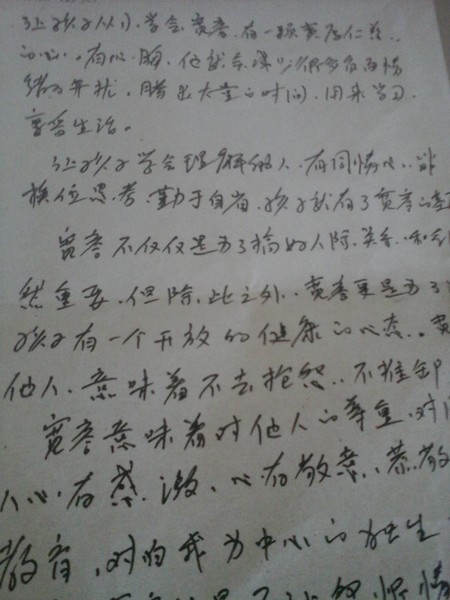 让孩子从小学会宽容、有一颗宽厚仁慈
的心。有心胸、他就会减少很多负面情
绪的干扰，腾出大量的时间，用来学习、
享受生活。
让孩子学会理解他人、有同情心、能
换位思考、勤于自省、孩子就有了宽容的
宽容不仅仅是为了搞好人际关系、和
然重要、但除此之外、宽容更是为了
孩子有一个开放的健康的心态。宽
他人、意味着不去抱怨、不推卸
宽容意味着对他人的尊重、对
人心存感激、心存敬意、恭敬
教育，对自我为中心的独生